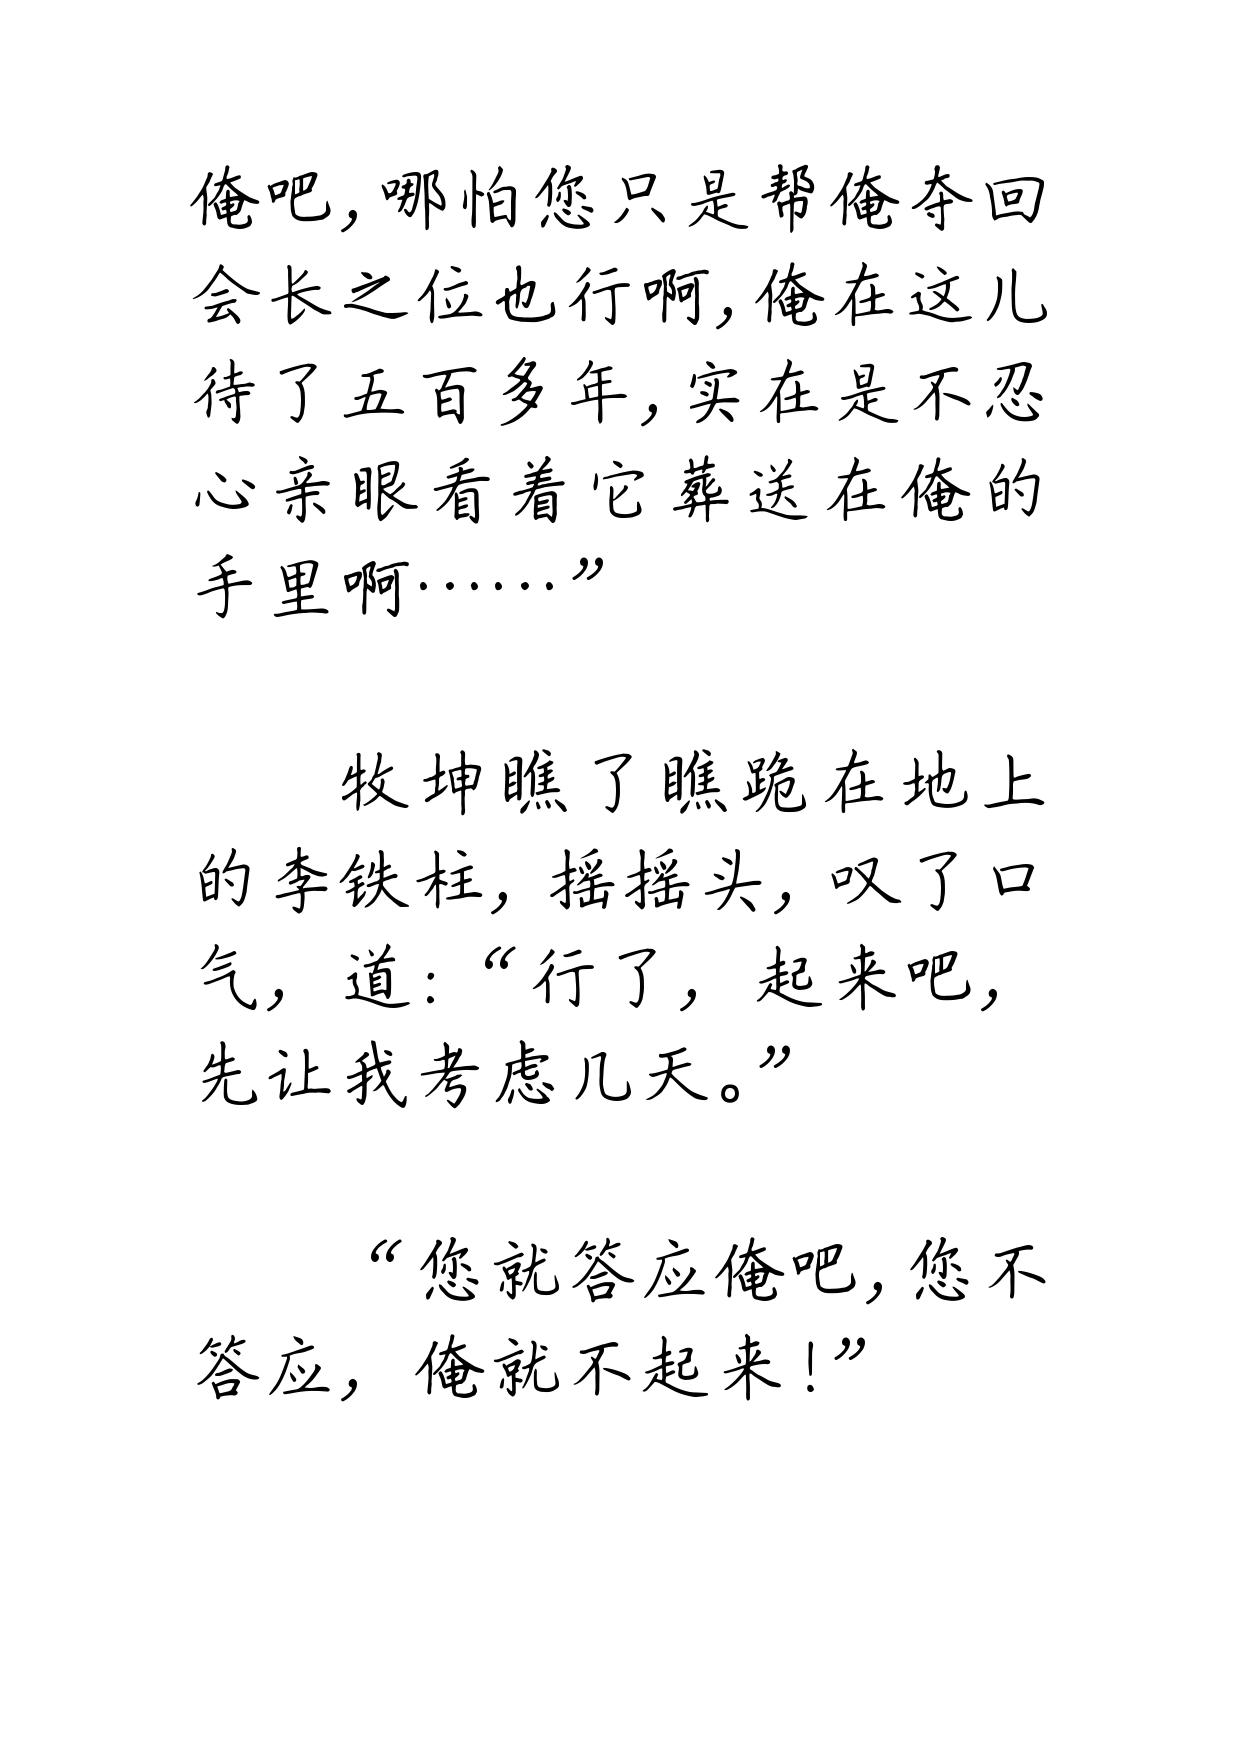 俺吧,哪怕您只是帮俺夺回
会长之位也行啊,俺在这儿
待了五百多年,实在是不忍
心亲眼看着它葬送在俺的
手里啊……”
牧坤瞧了瞧跪在地上
的李铁柱，摇摇头，叹了口
气，道：“行了，起来吧，
先让我考虑几天。”
“您就答应俺吧,您不
答应，俺就不起来！”